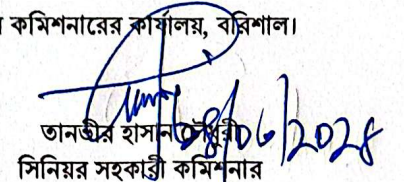 কমিশনারের কার্যালয়, বরিশাল।
০৪/০৬/২০২৪
তানভীর হাসান চৌধুরী
সিনিয়র সহকারী কমিশনার